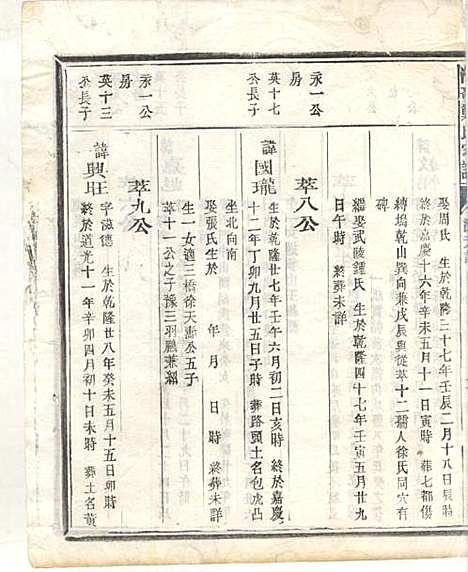 娶周氏 生於乾隆三十七年壬辰二月十八日辰時
終於嘉慶十六年辛未五月十一日寅時 葬七都傷
磚塢乾山巽向兼戊辰與從萃十二孺人徐氏同穴有
碑
繼娶武陵鍾氏 生於乾隆四十七年壬寅五月廿九
日午時 終葬未詳
永一公
房
英十七
公長子
萃八公
諱國瓏
生於乾隆廿七年壬午六月初二日亥時 終於嘉慶
十二年丁卯九月廿五日子時 葬路頭土名包虎凸
坐北向南
娶張氏生於 年 月 日 時 終葬未詳
生一女適三橋徐天
公五子
萃十一公之子豫三羽鵬兼繼
永一公
房
英十三
公長子
萃九公
諱興旺
字滋德 生於乾隆廿八年癸未五月十五日卯時
終於道光十一年辛卯四月初十日未時 葬土名黃